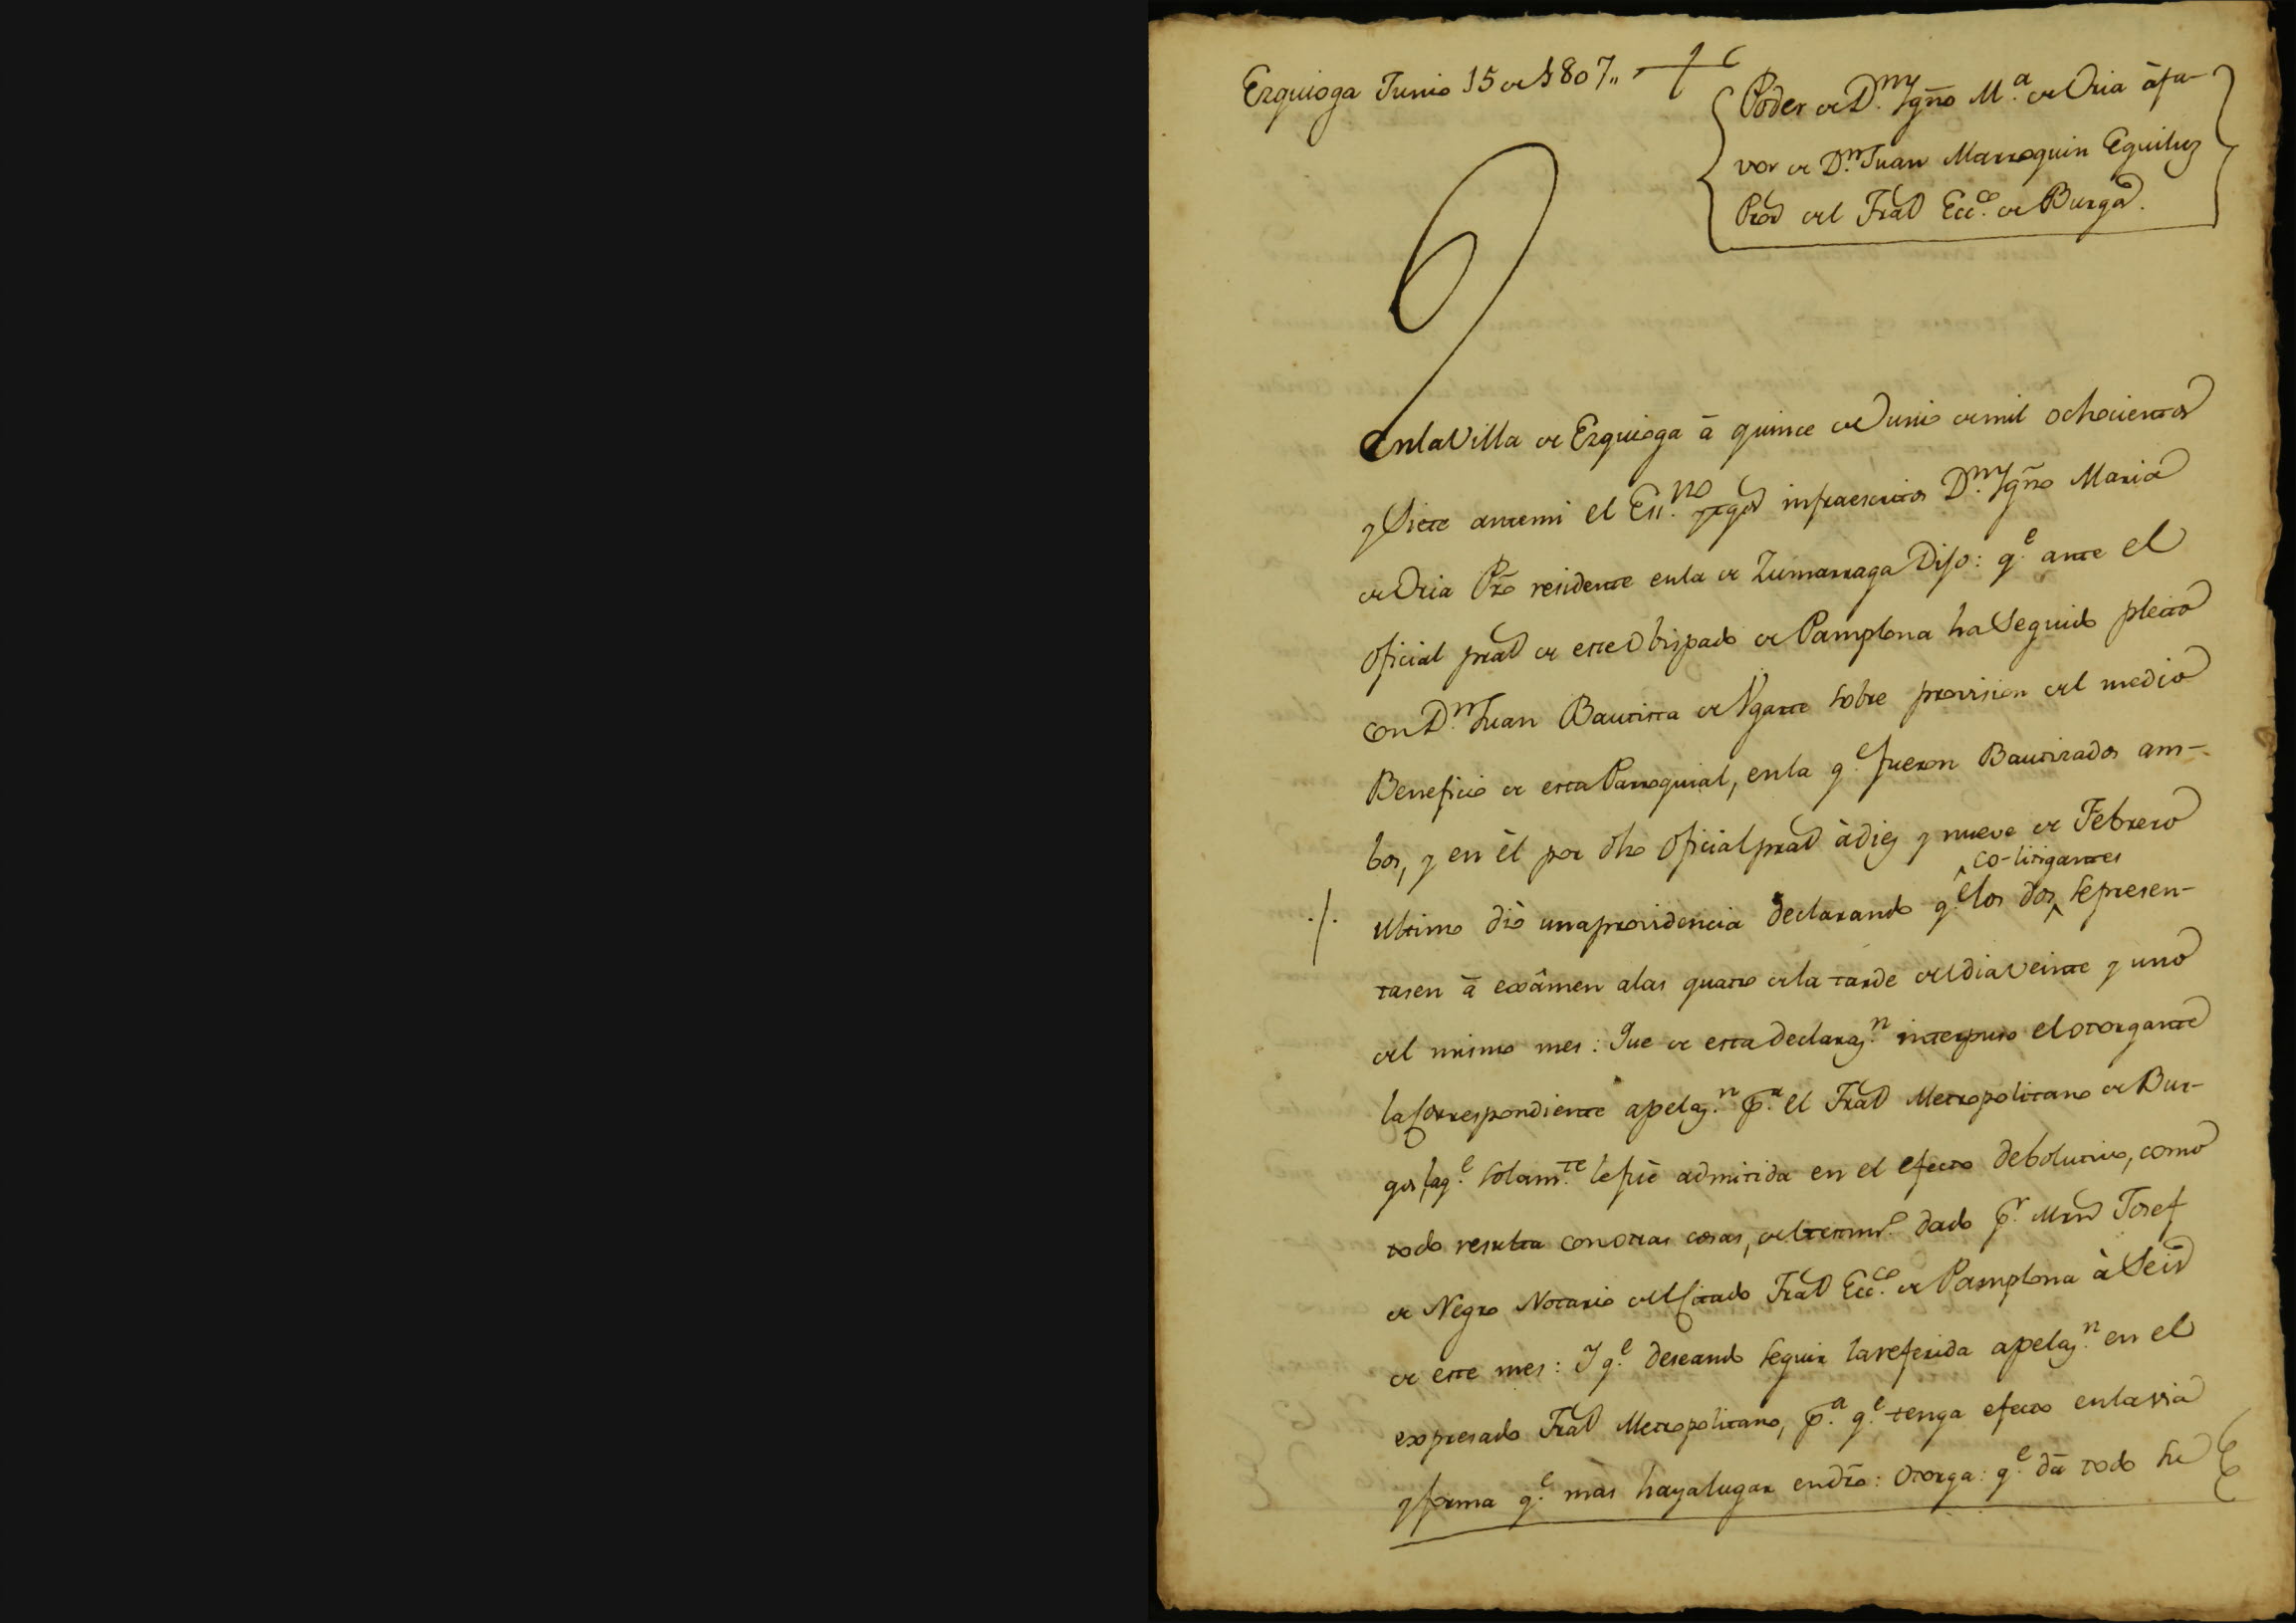 Ezquioga Junio 15 de 1807,,
Poder de D.n Ygñº M.a de Oria àfa-
vor de D.n Juan Marroquin Eguiluz
Pror del Tral Ecc.co de Burgos.
En la Villa de Ezquioga ā quince de Junio de mil ochocientos
y Siete antemi el Ess.no y tgos infraescritos D.n Ygñº Maria
de Oria Pr̃o residente en la de Zumarraga Dijo: q.e ante el
Oficial pral de este Obispado de Pamplona ha Seguido pleito
con D.n Juan Bautista de Ygarte sobre provision del medio
Beneficio de esta Parroquial, en la q.e fueron Bautizados am-
bos, y en èl por dho Oficial pral àdiez y nueve de Febrero
co-litigantes
./. ultimo diò una providencia declarando q.e los dos ^ se presen-
tasen ā exâmen alas quatro de la tarde del dia veinte y uno
del mismo mes: Que de esta declaraz.n interpuso el otorgante
la Correspondiente apelaz.n p.a el Tral Metropolitano de Bur-
gos, laq.e solam.te le fuè admitida en el efecto debolutivo, como
todo resulta con otras cosas, del testim.o dado p.r Mrn Josef
de Negro Notario del Citado Tral Ecc.co de Pamplona à Seis
de este mes: Y q.e deseando seguir la referida apelaz.n en el
expresado Tral Metropolitano, p.a q.e tenga efecto en la via
y forma q.e màs haya lugar en dr̃o: Otorga: q.e dā todo su